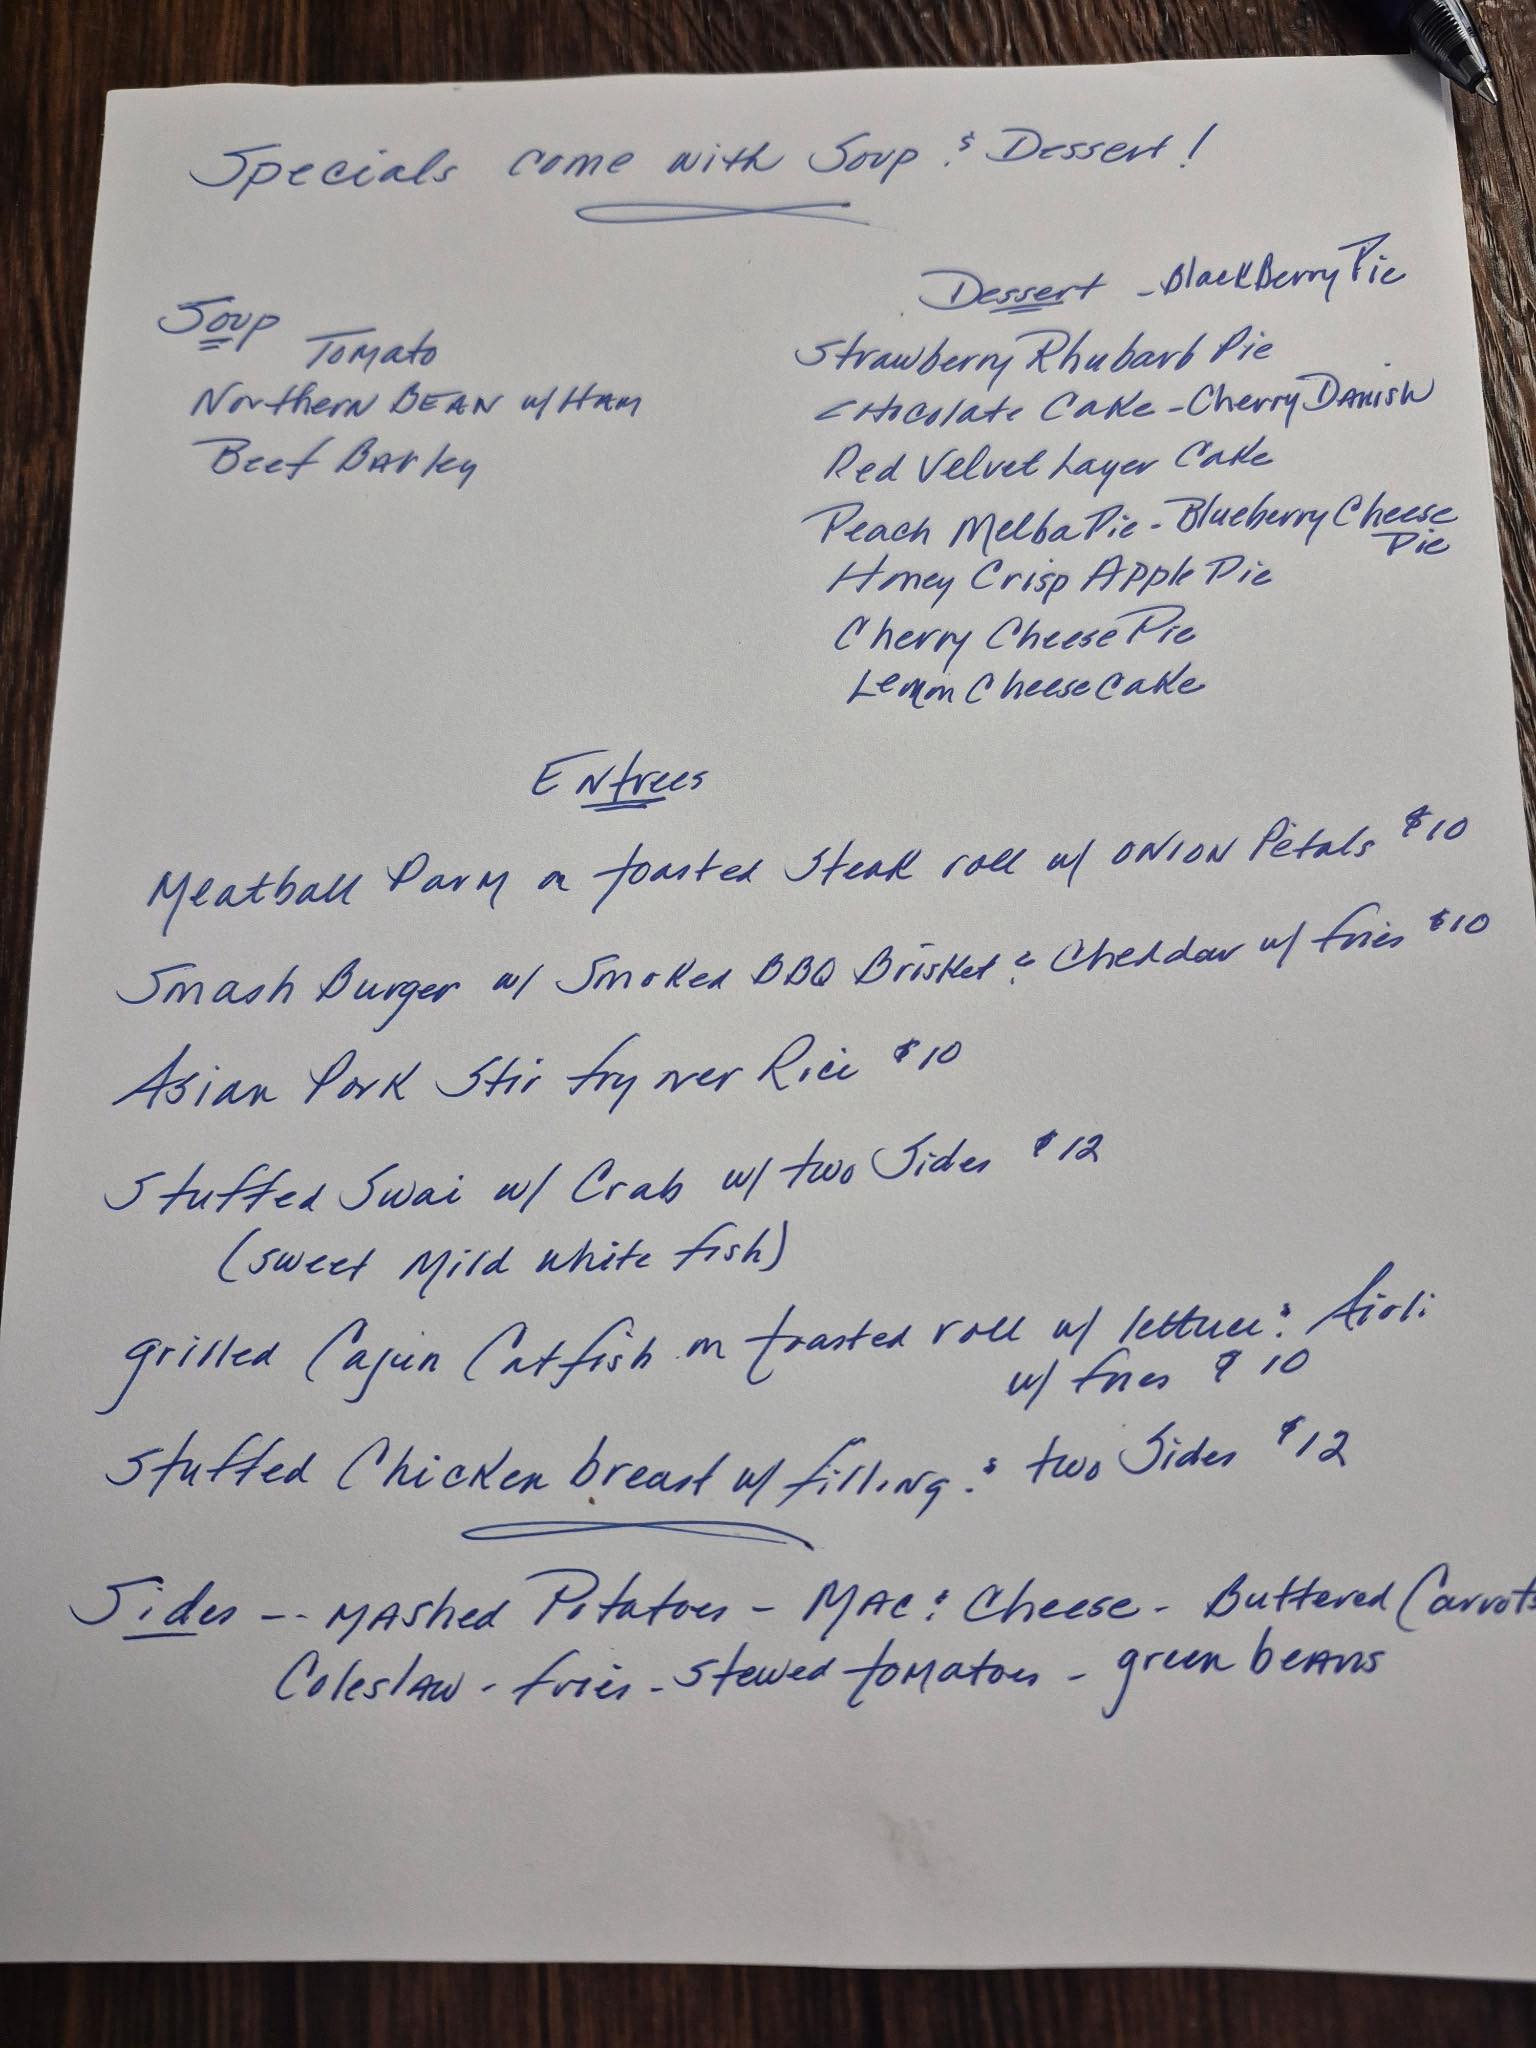 Specials come with Soup & Dessert!
Soup
Tomato
Northern BEAN w/ HAM
Beef Barley
Dessert - BlackBerry Pie
Strawberry Rhubarb Pie
Chocolate Cake - Cherry Danish
Red Velvet Layer Cake
Peach Melba Pie - Blueberry Cheese
Pie
Honey Crisp Apple Pie
Cherry Cheese Pie
Lemon Cheese Cake
Entrees
Meatball Parm on toasted Steak roll w/ ONION Petals $10
Smash Burger w/ Smoked BBQ Brisket & Cheddar w/ fries $10
Asian Pork Stir fry over Rice $10
Stuffed Swai w/ Crab w/ two Sides $12
(sweet Mild white fish)
grilled Cajun Catfish on toasted roll w/ lettuce & Aioli
w/ fries $10
Stuffed Chicken breast w/ filling & two Sides $12
Sides -- MAShed Potatoes - MAC & Cheese - Buttered Carrots
Coleslaw - fries - Stewed tomatoes - green beans